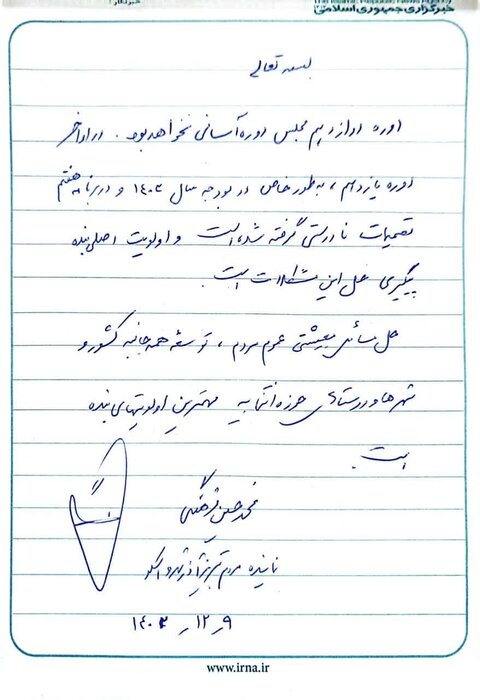 خبرگزاری جمهوری اسلامی
بسمه تعالی
دوره دوازدهم مجلس دوره آسانی نخواهد بود. در اواخر
دوره یازدهم، به طور خاص در بودجه سال ۱۴۰۳ و در برنامه هفتم
تصمیمات نادرستی گرفته شده است و اولویت اصلی بنده
پیگیری حل این مشکلات است.
حل مسائل معیشتی عموم مردم، توسعه همه جانبه کشور و
شهرها و روستاهای حوزه انتخابیه مهمترین اولویتهای بنده
است.
محمدحسین فرهنگی
نماینده مردم تبریز آذرشهر و اسکو
۱۴۰۲-۱۲-۹
www.irna.ir